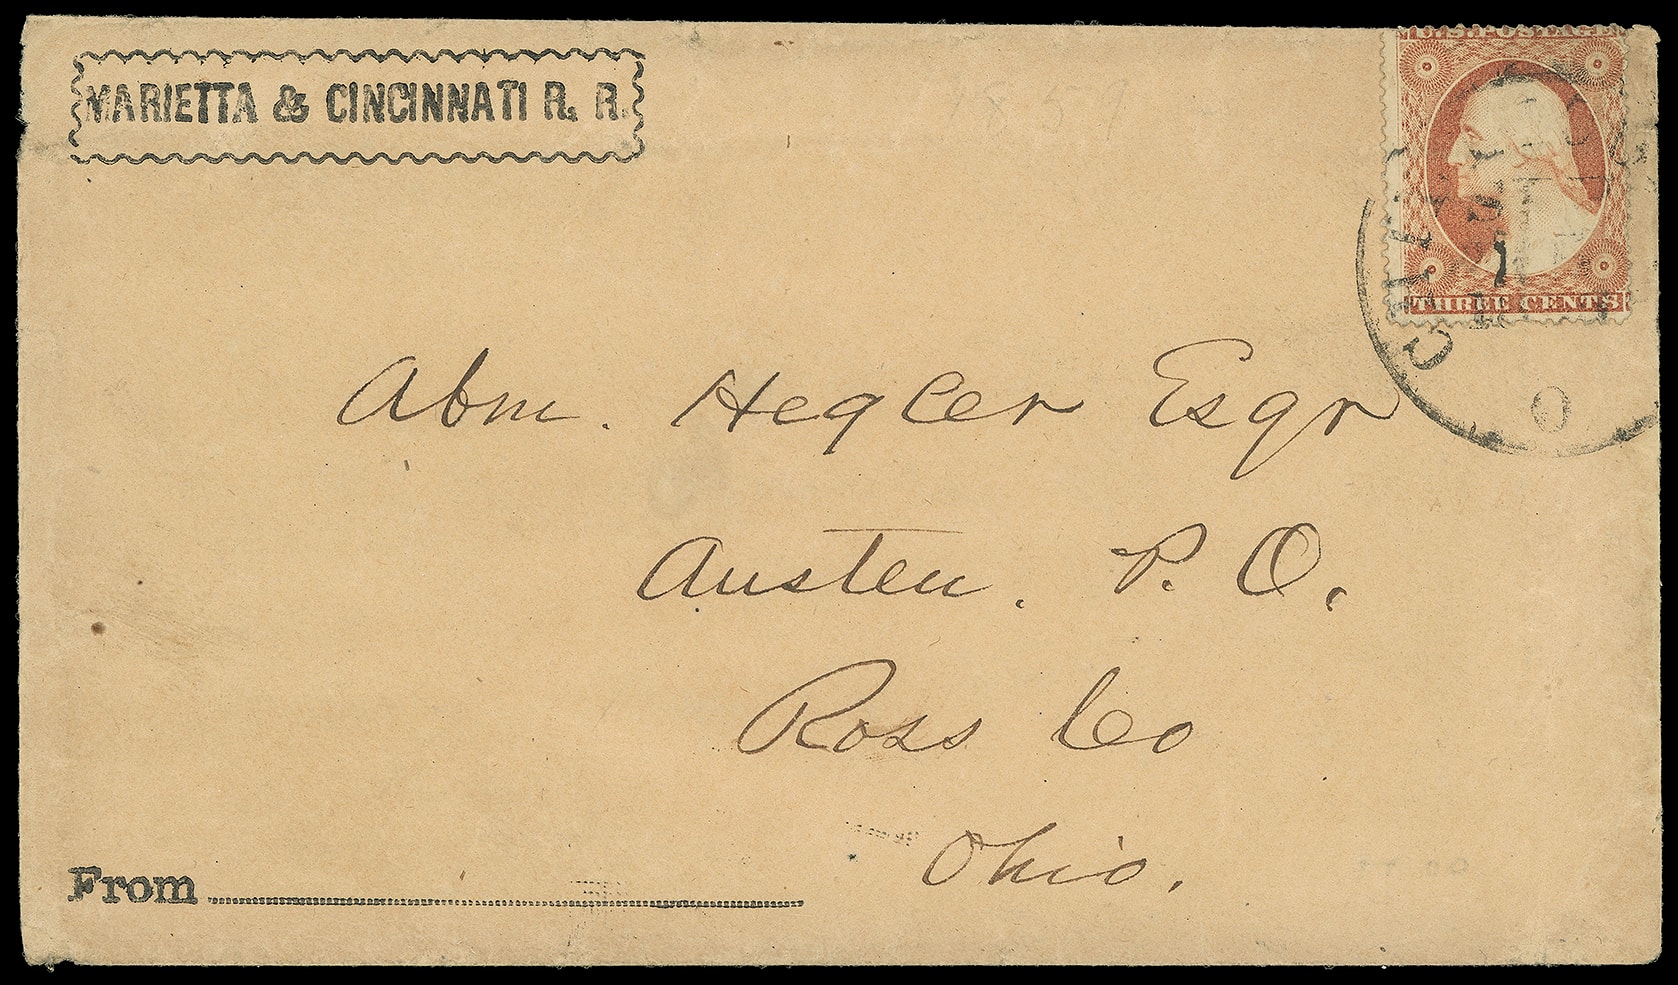 MARIETTA & CINCINNATI R. R.
U.S. POSTAGE
THREE CENTS
O
Abm. Hegler Esqr
Austen. P. O.
Ross Co
Ohio.
From